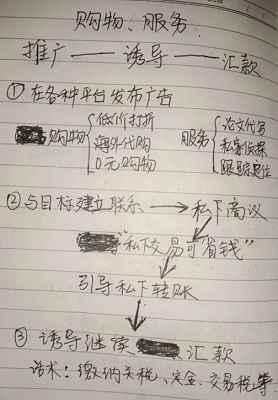 购物、服务
推广——诱导——汇款
① 在各种平台发布广告
购物 { 低价打折 服务 { 论文代写
海外代购 私家侦探
0元购物 跟踪定位
② 与目标建立联系 → 私下商议
"私下交易可省钱"
引导私下转账
③ 诱导继续 汇款
话术：缴纳关税、定金、交易税等